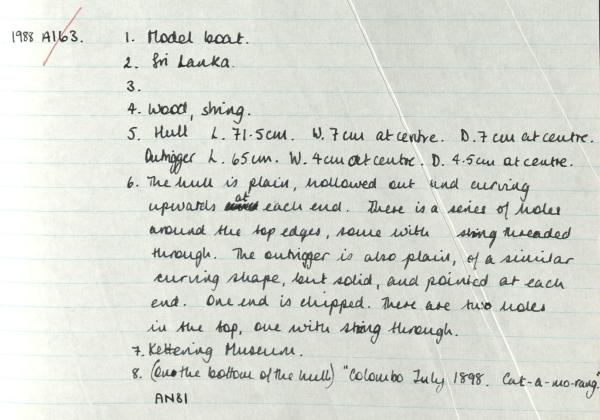 1988 A163. 1. Model boat.
2. Sri Lanka.
3.
4. Wood, string.
5. Hull L. 71.5cm. W. 7cm at centre. D. 7cm at centre.
Outrigger L. 65cm. W. 4cm at centre. D. 4.5cm at centre.
6. The hull is plain, hollowed out and curving
upwards at each end. There is a series of holes
around the top edges, some with string threaded
through. The outrigger is also plain, of a similar
curving shape, but solid, and pointed at each
end. One end is chipped. There are two holes
in the top, one with string through.
7. Kettering Museum.
8. (On the bottom of the hull) "Colombo July 1898. Cat-a-mo-rang"
AN81